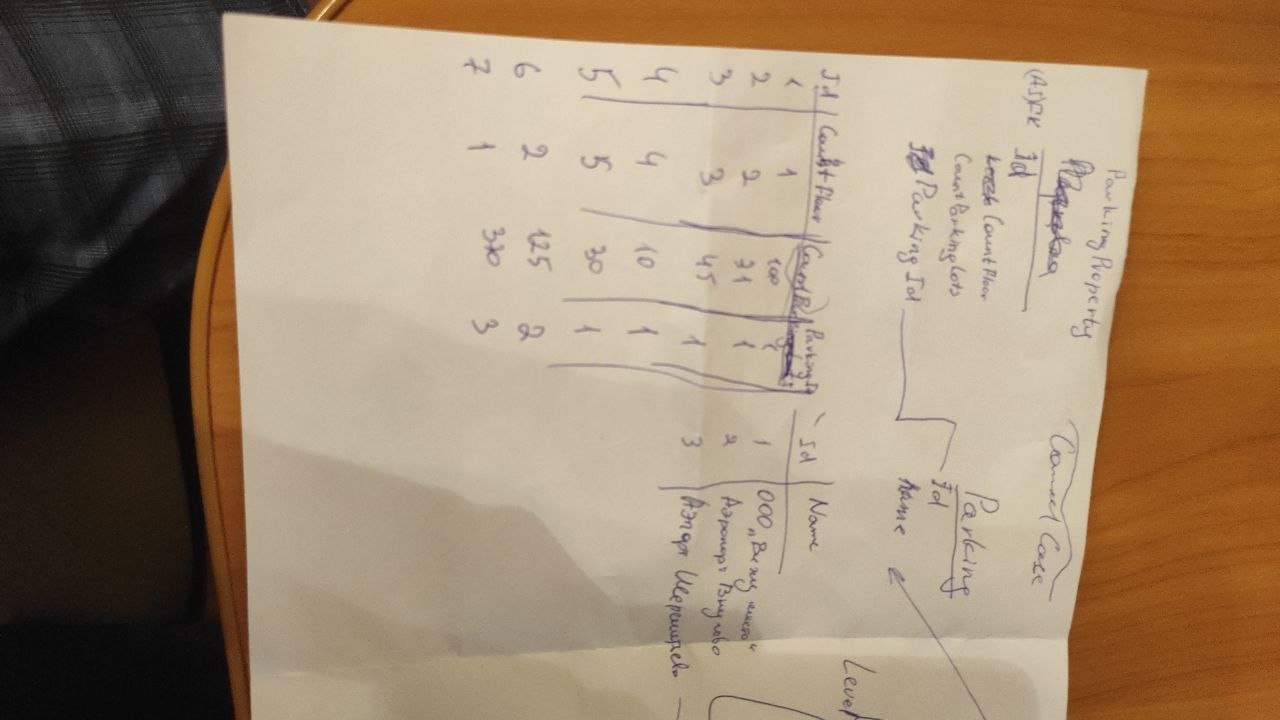 ParkingProperty
Camel Case
(AI)PK Id
CountFloor
CountParkingLots
ParkingId
Parking
Id
Name
Level
Id Count Floor Count ParkingId
1 1 100 1
2 2 31 1
3 3 45 1
4 4 10 1
5 5 30 1
6 2 125 2
7 1 330 3
Id Name
1 ООО „Вижу место“
2 Аэропорт Внуково
3 Аэпорт Шереметьево